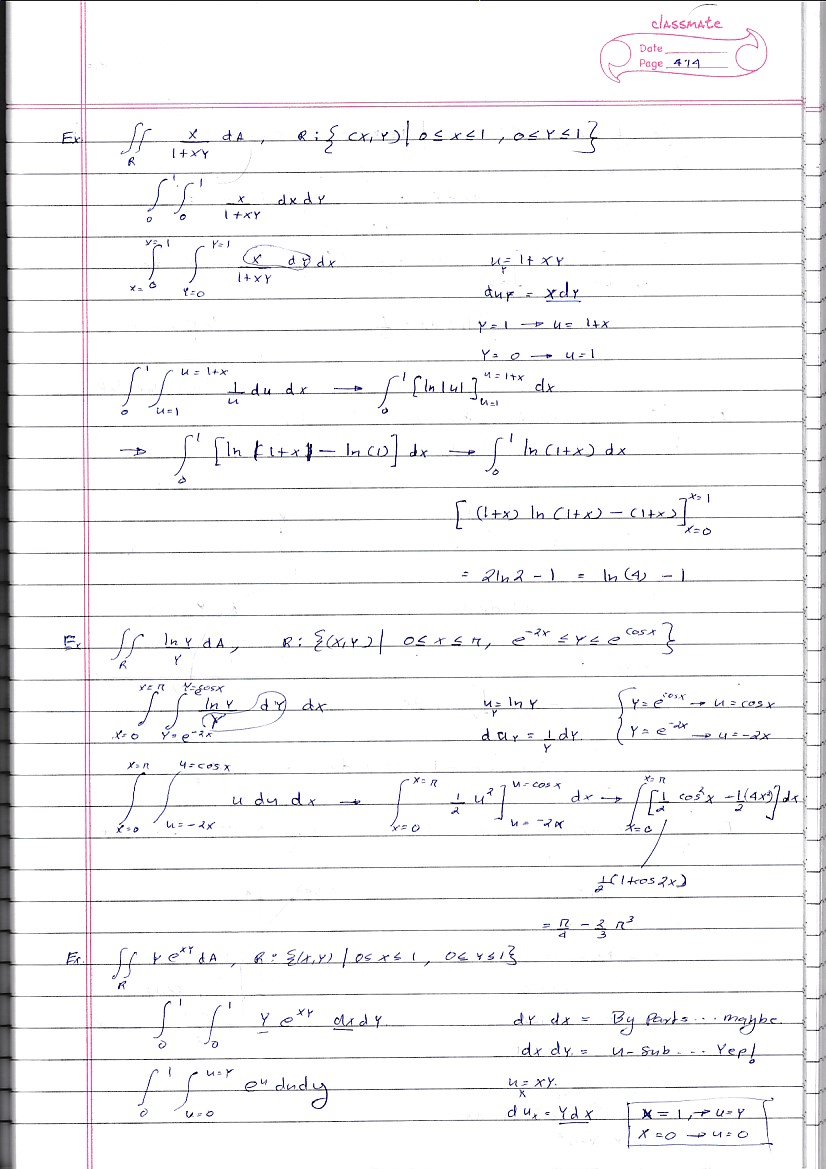 classmate
Date
Page 414
Ex ∬_R x/(1+xy) dA, R: {(x,y) | 0 ≤ x ≤ 1, 0 ≤ y ≤ 1}
∫_0^1 ∫_0^1 x/(1+xy) dx dy
∫_{x=0}^{x=1} ∫_{y=0}^{y=1} x/(1+xy) dy dx u_y = 1+xy
du_y = x dy
y=1 → u = 1+x
y=0 → u=1
∫_0^1 ∫_{u=1}^{u=1+x} 1/u du dx → ∫_0^1 [ln|u|]_{u=1}^{u=1+x} dx
→ ∫_0^1 [ln(1+x) - ln(1)] dx → ∫_0^1 ln(1+x) dx
[(1+x) ln(1+x) - (1+x)]_{x=0}^{x=1}
= 2ln2 - 1 = ln(4) - 1
Ex. ∬_R ln y/y dA, R: {(x,y) | 0 ≤ x ≤ π, e^{-2x} ≤ y ≤ e^{cosx}}
∫_{x=0}^{x=π} ∫_{y=e^{-2x}}^{y=e^{cosx}} ln y/y dy dx u_y = ln y { y=e^{cosx} → u=cosx
du_y = 1/y dy { y=e^{-2x} → u=-2x
∫_{x=0}^{x=π} ∫_{u=-2x}^{u=cosx} u du dx → ∫_{x=0}^{x=π} 1/2 u²]_{u=-2x}^{u=cosx} dx → ∫_{x=0}^{x=π} [1/2 cos²x - 1/2(4x²)] dx
1/2(1+cos2x)
= π/4 - 2/3 π³
Ex. ∬_R y e^{xy} dA, R: {(x,y) | 0 ≤ x ≤ 1, 0 ≤ y ≤ 1}
∫_0^1 ∫_0^1 y e^{xy} dx dy dy dx = By parts... maybe.
dx dy = u-sub... Yep!
∫_0^1 ∫_{u=0}^{u=y} e^u du dy u_x = xy.
du_x = y dx x=1, → u=y
x=0 → u=0